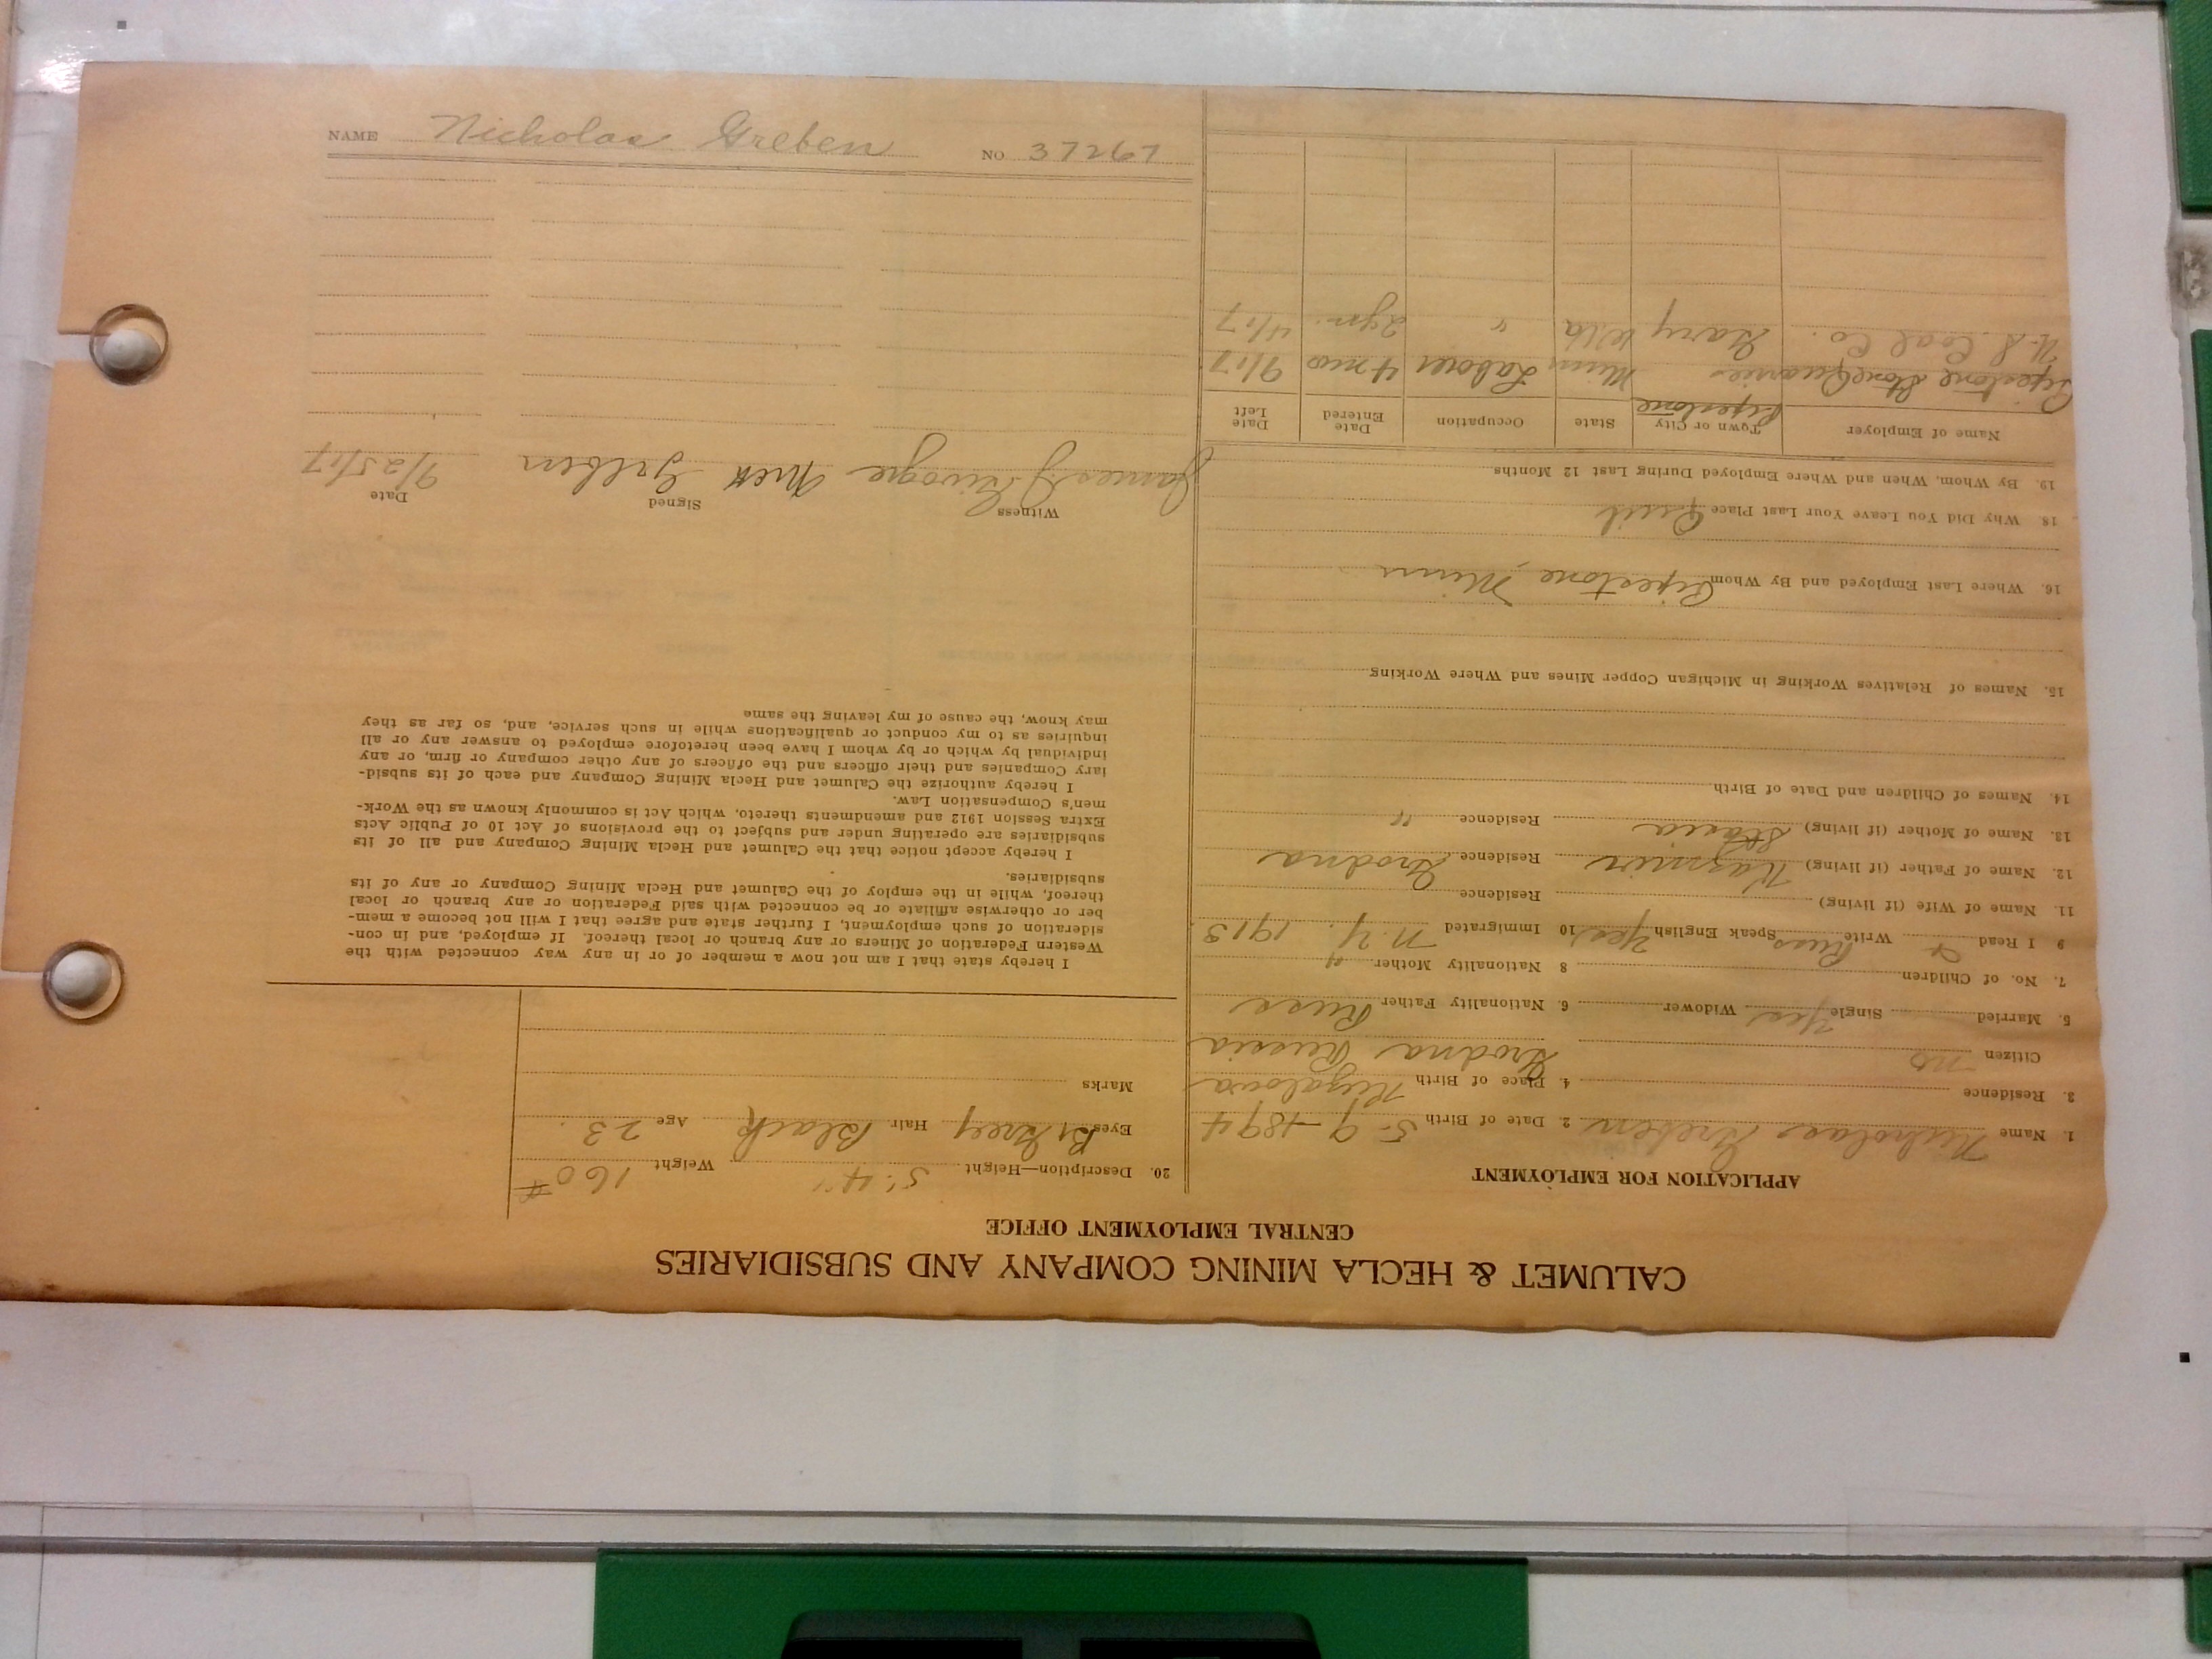 CALUMET & HECLA MINING COMPANY AND SUBSIDIARIES
CENTRAL EMPLOYMENT OFFICE
APPLICATION FOR EMPLOYMENT
1. Name Nicholas Greben 2. Date of Birth 5-9-1894
3. Residence 4. Place of Birth
Citizen no Grodna Russia
5. Married Single Yes Widower 6. Nationality Father Russ
7. No. of Children 8 Nationality Mother "
9 I Read Write Russ Speak English Yes 10 Immigrated N.Y. 1913
11. Name of Wife (if living) Residence
12. Name of Father (if living) Kazmier Residence Grodna
13. Name of Mother (if living) Residence "
14. Names of Children and Date of Birth
15. Names of Relatives Working in Michigan Copper Mines and Where Working
16. Where Last Employed and By Whom Pipestone, Minn
18. Why Did You Leave Your Last Place Quit
19. By Whom, When and Where Employed During Last 12 Months
Name of Employer Town or City State Occupation Date Entered Date Left
Pipestone Stone Quarries Pipestone Minn Laborer 4 mos 9/17
U.S. Coal Co. Gary W.Va " 2 yrs. 4/17
20. Description—Height 5'.4" Weight 160#
Eyes Hair Black Age 23
Marks
I hereby state that I am not now a member of or in any way connected with the
Western Federation of Miners or any branch or local thereof. If employed, and in con-
sideration of such employment, I further state and agree that I will not become a mem-
ber or otherwise affiliate or be connected with said Federation or any branch or local
thereof, while in the employ of the Calumet and Hecla Mining Company or any of its
subsidiaries.
I hereby accept notice that the Calumet and Hecla Mining Company and all of its
subsidiaries are operating under and subject to the provisions of Act 10 of Public Acts
Extra Session 1912 and amendments thereto, which Act is commonly known as the Work-
men's Compensation Law.
I hereby authorize the Calumet and Hecla Mining Company and each of its subsid-
iary Companies and their officers and the officers of any other company or firm, or any
individual by which or by whom I have been heretofore employed to answer any or all
inquiries as to my conduct or qualifications while in such service, and, so far as they
may know, the cause of my leaving the same
Witness Signed Date
James J. Greben 9/25/17
NAME Nicholas Greben NO 37267